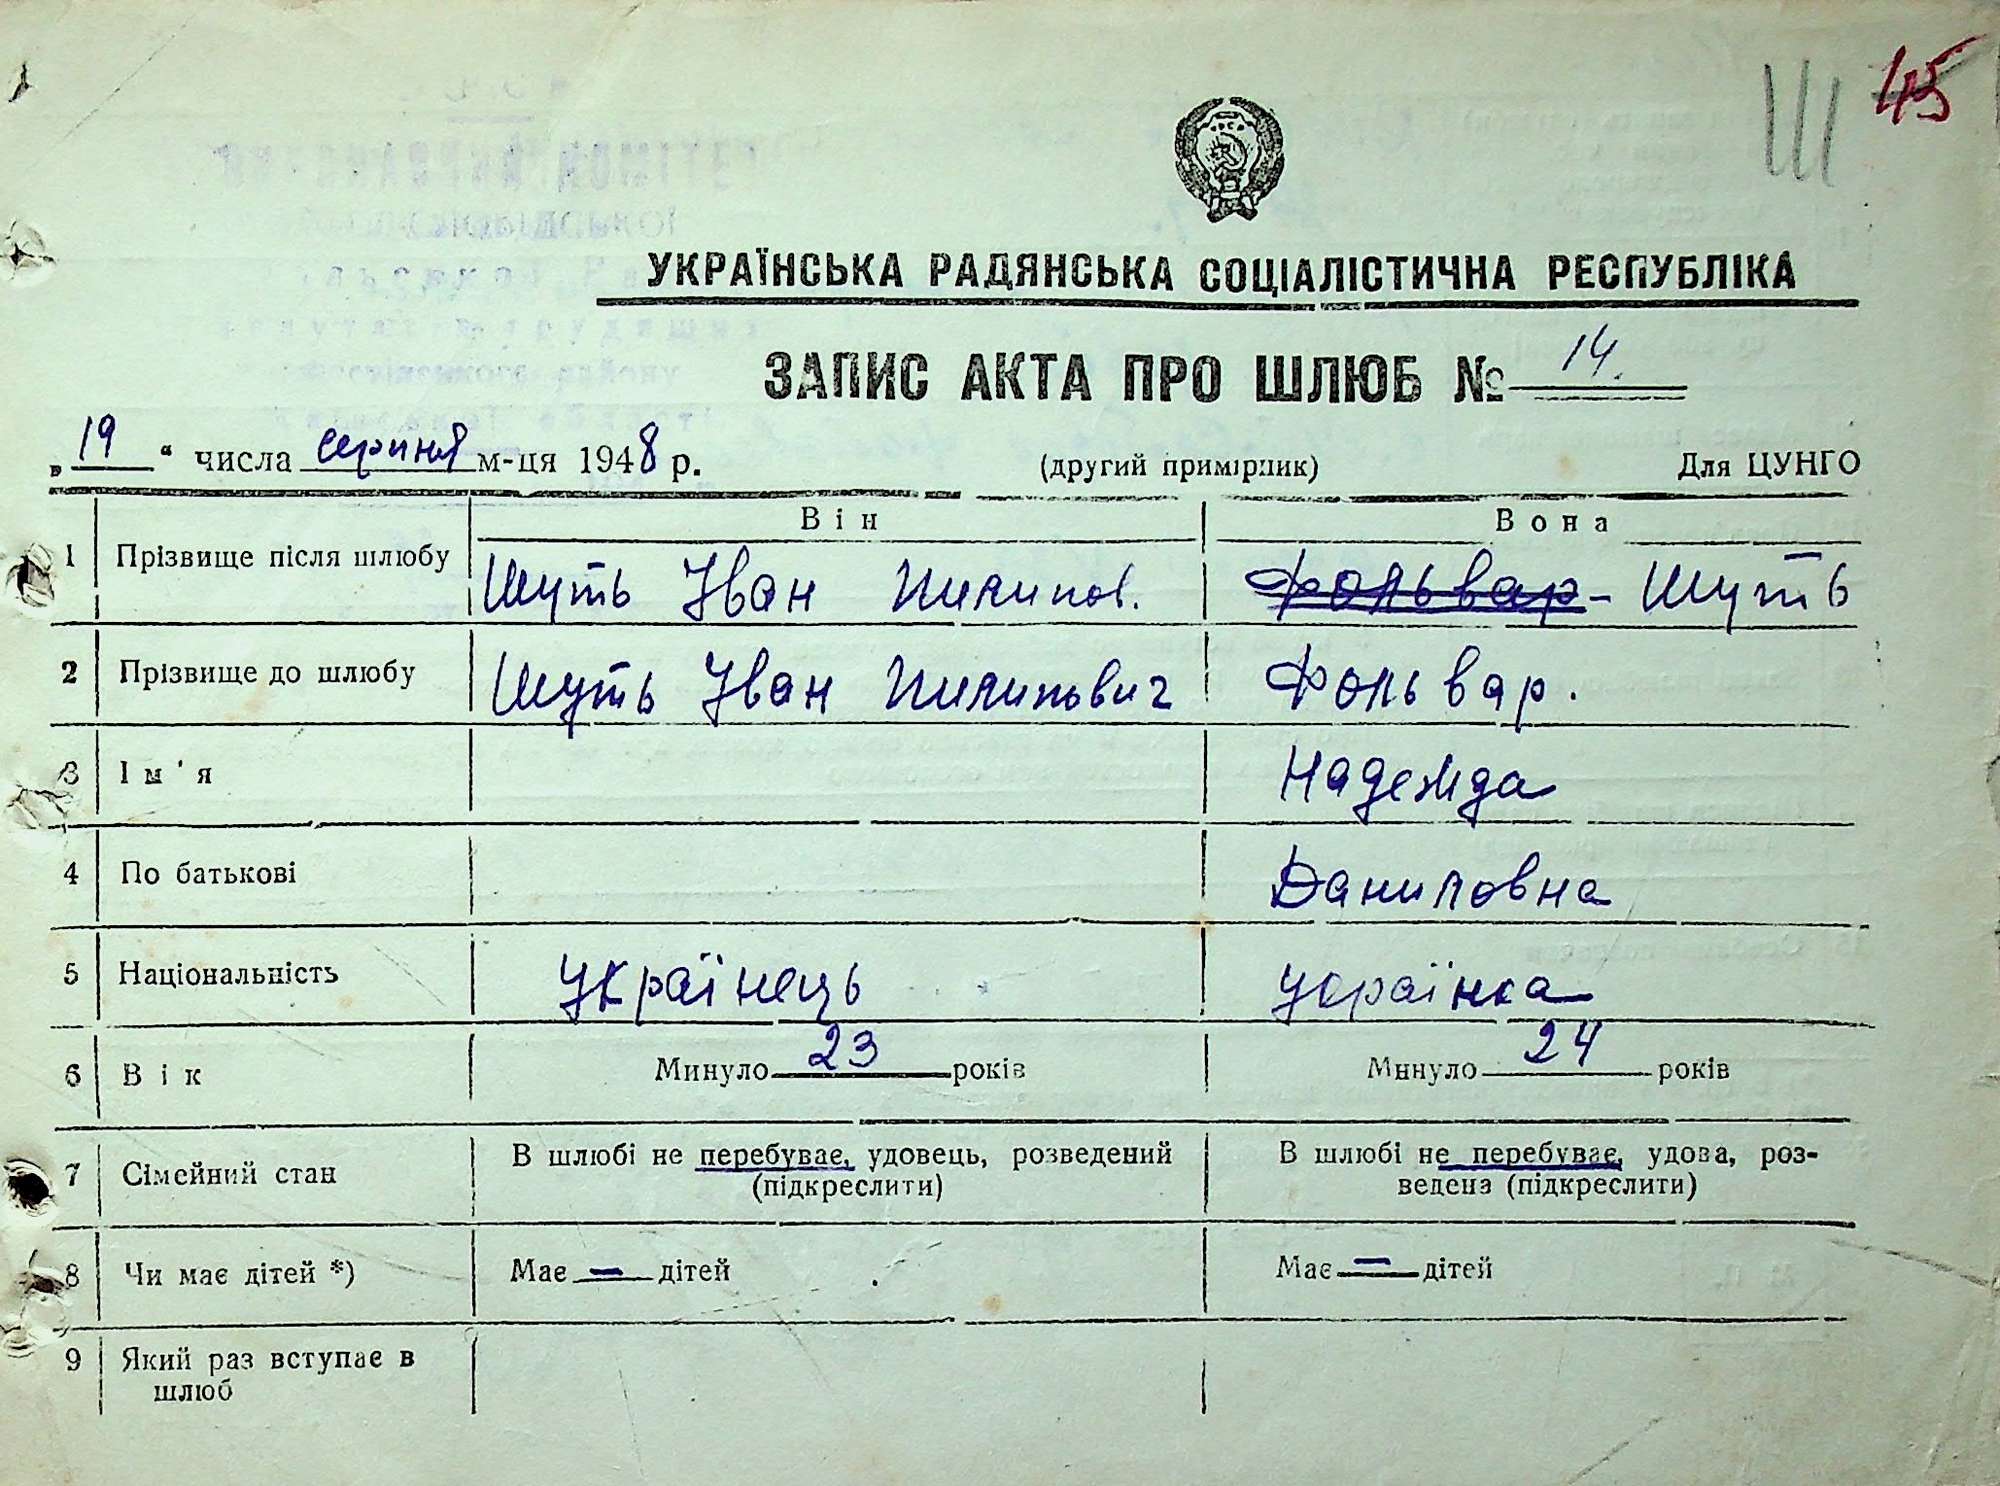 Ш 45
УКРАЇНСЬКА РАДЯНСЬКА СОЦІАЛІСТИЧНА РЕСПУБЛІКА
ЗАПИС АКТА ПРО ШЛЮБ № 14.
„19“ числа серпня м-ця 1948 р. (другий примірник) Для ЦУНГО
Він Вона
1 Прізвище після шлюбу Шуть Іван Пилипов. Фольвар - Шуть
2 Прізвище до шлюбу Шуть Іван Пилипович Фольвар.
3 Ім'я Надежда
4 По батькові Даниловна
5 Національність Українець українка
6 Вік Минуло 23 років Минуло 24 років
7 Сімейний стан В шлюбі не перебуває, удовець, розведений (підкреслити) В шлюбі не перебуває, удова, роз-
ведена (підкреслити)
8 Чи має дітей *) Має — дітей Має — дітей
9 Який раз вступає в
шлюб